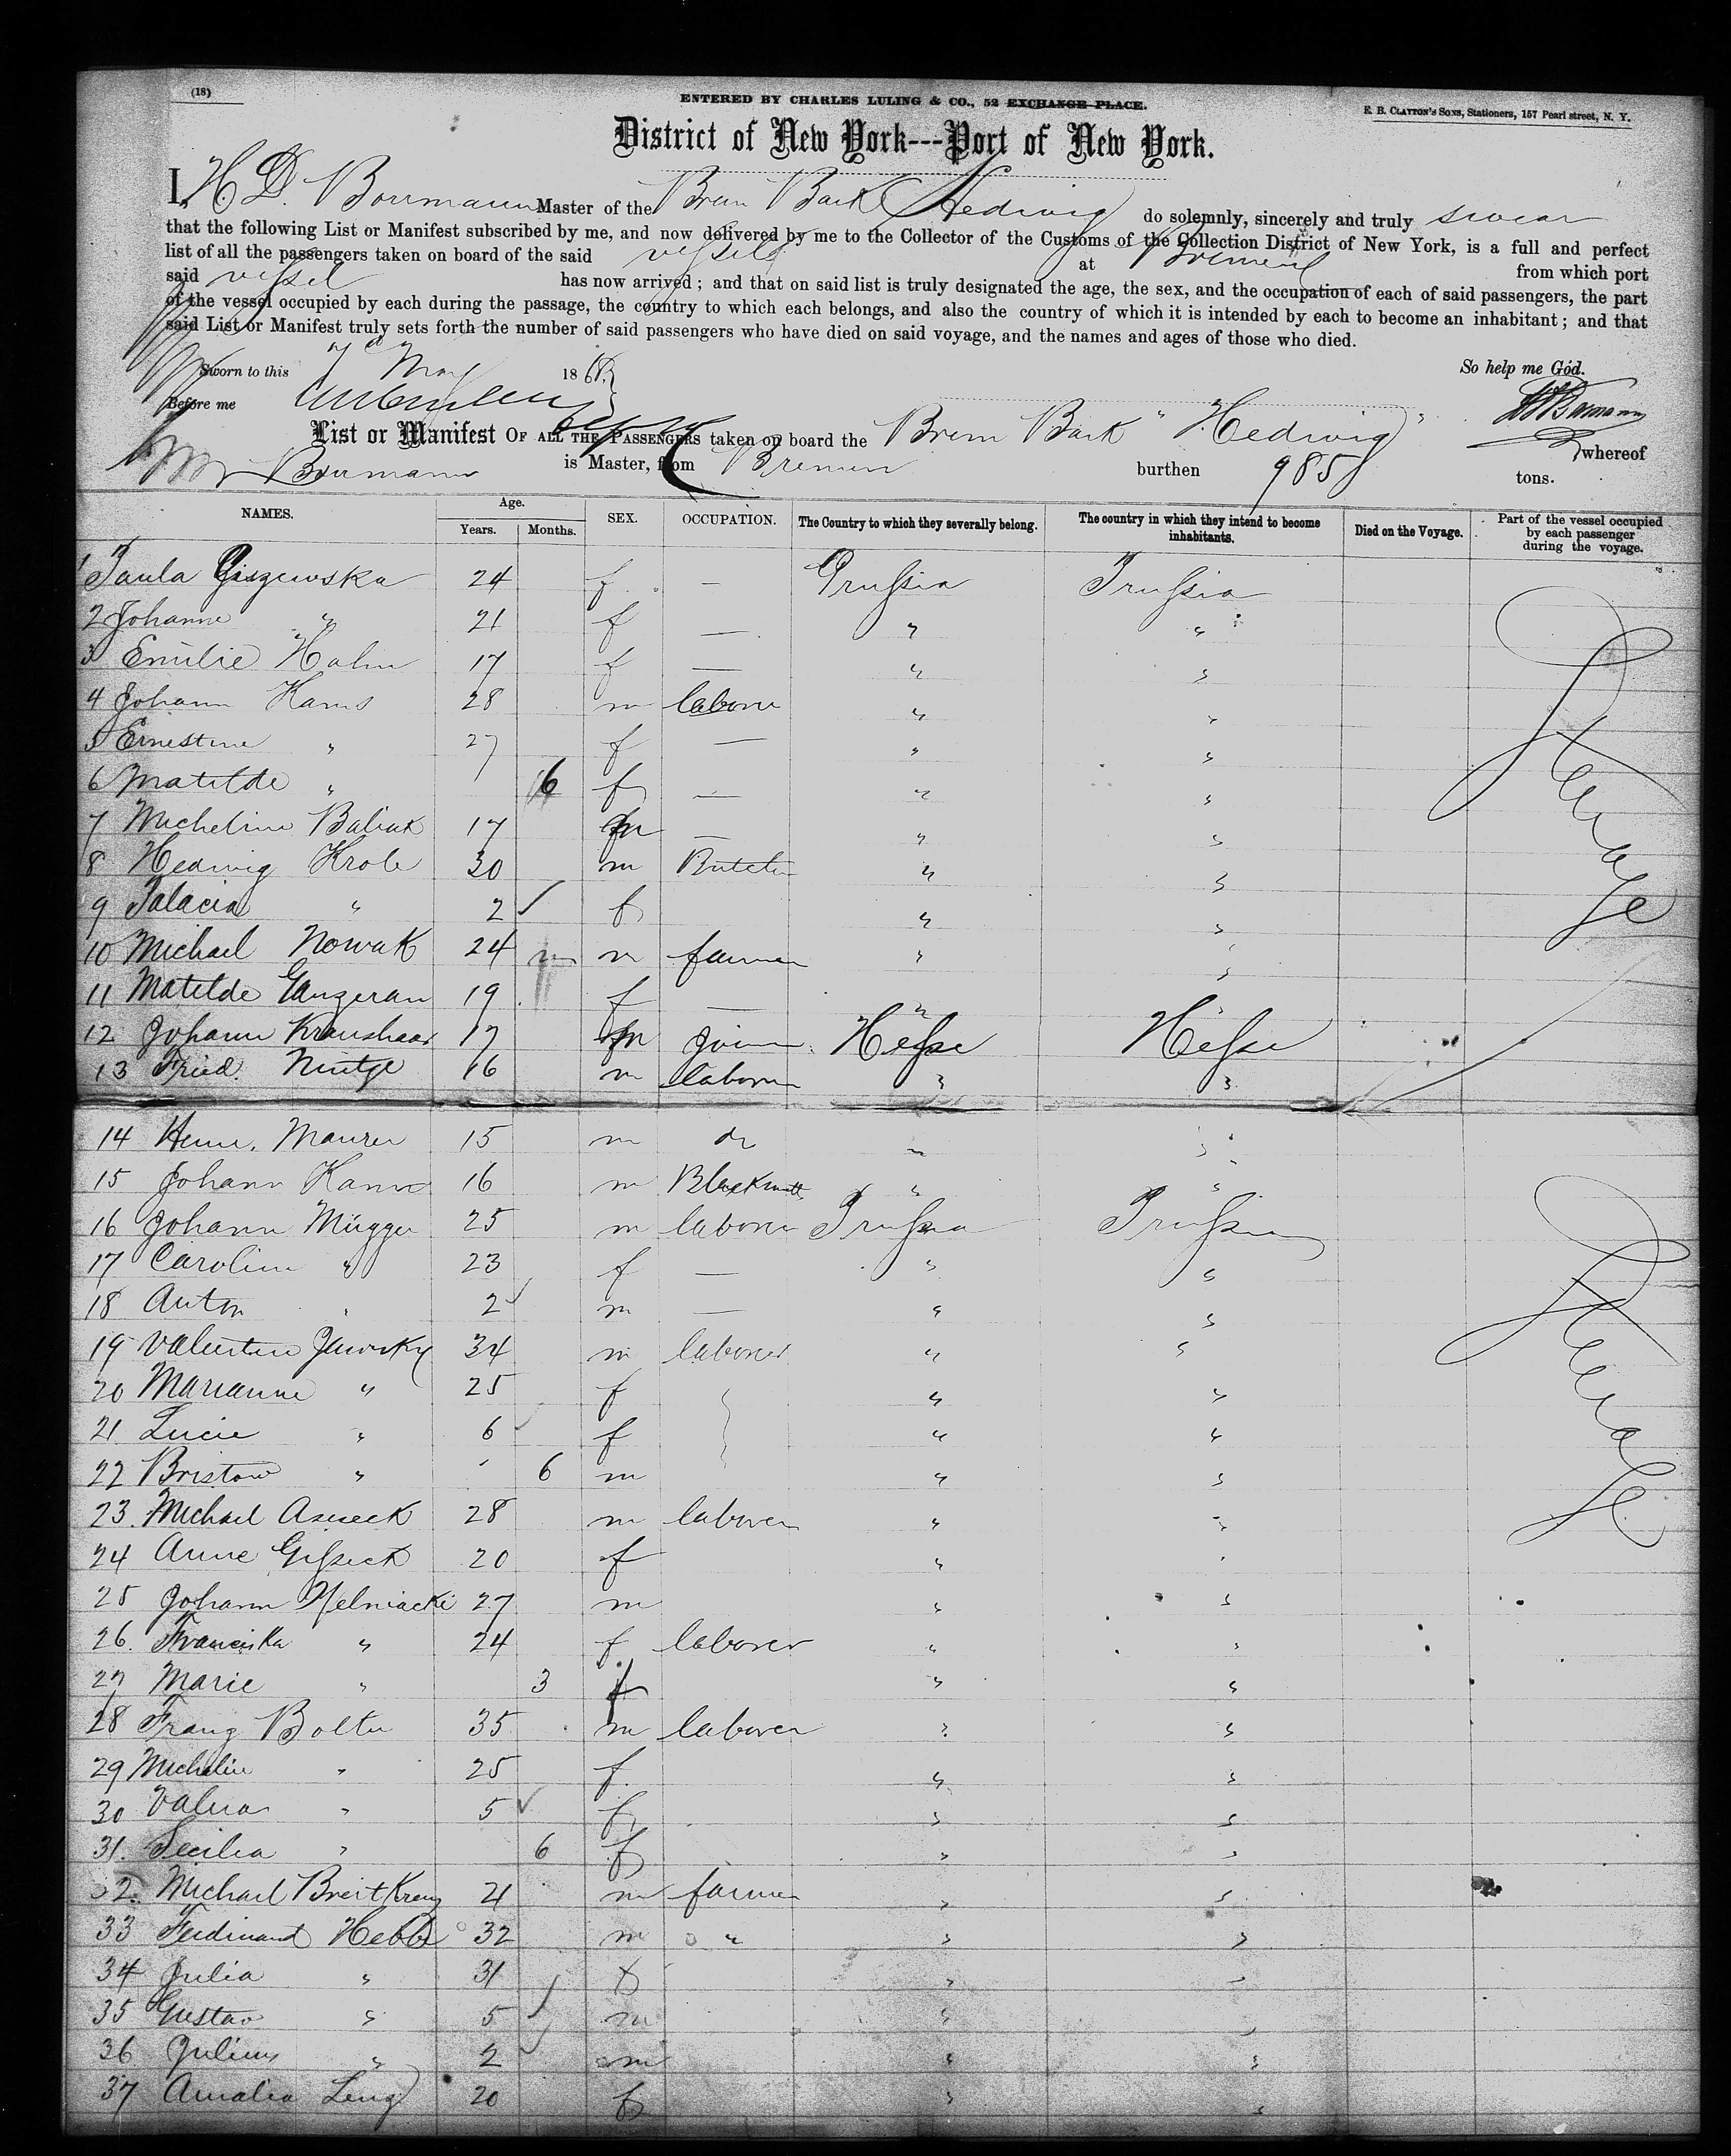 (18)
ENTERED BY CHARLES LULING & CO., 52 EXCHANGE PLACE.
E. B. CLAYTON'S SONS, Stationers, 157 Pearl street, N. Y.
District of New York---Port of New York.
I, H. D. Bourmann Master of the Brem Bark Hedwig do solemnly, sincerely and truly swear
that the following List or Manifest subscribed by me, and now delivered by me to the Collector of the Customs of the Collection District of New York, is a full and perfect
list of all the passengers taken on board of the said vessel at Bremen from which port
said vessel has now arrived; and that on said list is truly designated the age, the sex, and the occupation of each of said passengers, the part
of the vessel occupied by each during the passage, the country to which each belongs, and also the country of which it is intended by each to become an inhabitant; and that
said List or Manifest truly sets forth the number of said passengers who have died on said voyage, and the names and ages of those who died.
Sworn to this May 18 So help me God.
Before me
List or Manifest OF ALL THE PASSENGERS taken on board the Brem Bark "Hedwig" whereof
Bourmann is Master, from Bremen burthen 985 tons.
NAMES. Age. Years. Months. SEX. OCCUPATION. The Country to which they severally belong. The country in which they intend to become inhabitants. Died on the Voyage. Part of the vessel occupied by each passenger during the voyage.
1 Paula 24 f — Prussia Prussia
2 Johanne " 21 f — " "
3 Emilie Hahn 17 f — " "
4 Johann Kams 28 m laborer " "
5 Ernestine " 27 f — " "
6 Matilde " 6 f — " "
7 Micheline Baliak 17 — " "
8 Hedwig Krole 30 m Butcher " "
9 Palacia " 2 f " "
10 Michael Nowak 24 m farmer " "
11 Matilde Ganzeran 19 f — " "
12 Johann Kraushaar 17 m joiner Hesse Hesse
13 Fried. 16 m laborer " "
14 Heinr. Maurer 15 m do " "
15 Johann 16 m Blacksmith " "
16 Johann Mügge 25 m laborer Prussia Prussia
17 Caroline " 23 f — " "
18 Anton " 2 m — " "
19 Valentin 34 m laborer " "
20 Marianne " 25 f " "
21 Lucie " 6 f " "
22 Bristow " 6 m " "
23 Michael 28 m laborer " "
24 Anne Gisseck 20 f " "
25 Johann 27 m " "
26 Franciska " 24 f laborer " "
27 Marie " 3 f " "
28 Franz Bolter 35 m laborer " "
29 Michelin " 25 f " "
30 " 5 f " "
31 Secilia " 6 f " "
32 Michael Breitkreuz 21 m farmer " "
33 Ferdinand Hebbe 32 m " " "
34 Julia " 31 f " "
35 Gustav " 5 m " "
36 Julius " 2 m " "
37 Amalia Leng 20 f " "
Steerage
Steerage